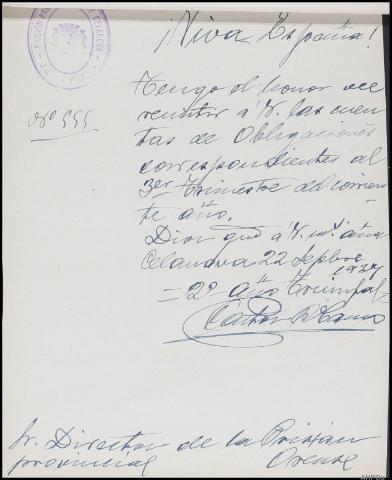 ¡Viva España!
Nº 555
Tengo el honor de
remitir á V. las cuen-
tas de Obligaciones
correspondientes al
3er Trimestre del corrien-
te año.
Dios gue á V. ms. años
Celanova 22 Sepbre
1937
= 2º año Triunfal
Sr. Director de la Prisión
provincial Orense